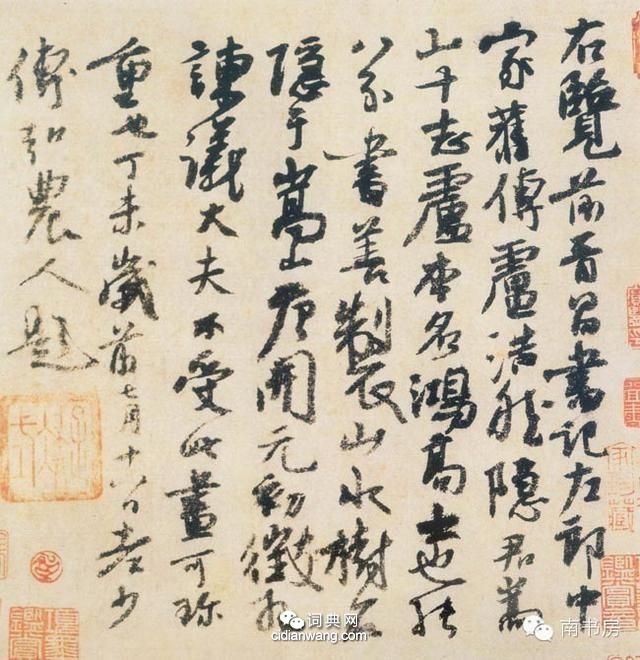 右覽前晉昌書記左郎中
家舊傳盧浩然隱君嵩
山十志盧本名鴻高士也能
八分書善製山水樹石
隱于嵩山唐開元初徵拜
諫議大夫不受此畫可珍
重也丁未歲前七月十八日老少
傅弘農人題
词典网
cidianwang.com
南书房